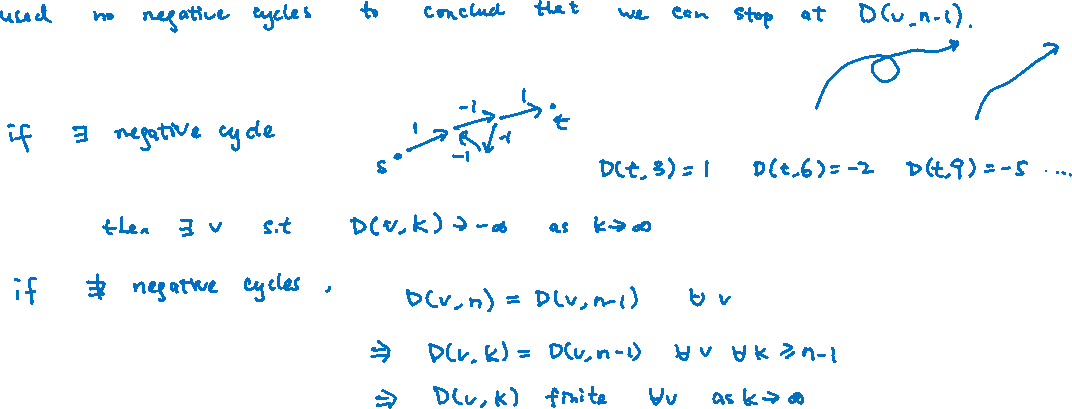 used no negative cycles to conclud that we can stop at D(v,n-1).
if ∃ negative cycle
1 -1 1
s -1 -1 t
D(t,3)=1 D(t,6)=-2 D(t,9)=-5 ....
then ∃ v s.t D(v,k)→-∞ as k→∞
if ∄ negative cycles, D(v,n) = D(v,n-1) ∀ v
⇒ D(v,k) = D(v,n-1) ∀v ∀k ≥ n-1
⇒ D(v,k) finite ∀v as k→∞